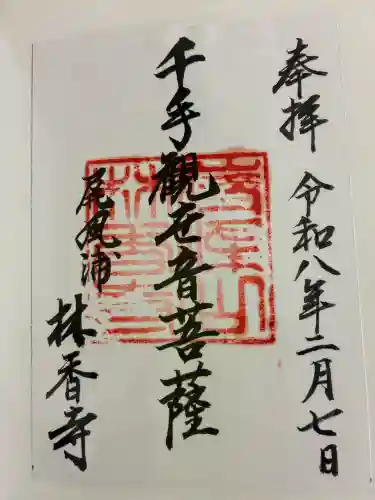 奉拝
令和八年二月七日
千手観世音菩薩
尾
浦
林香寺